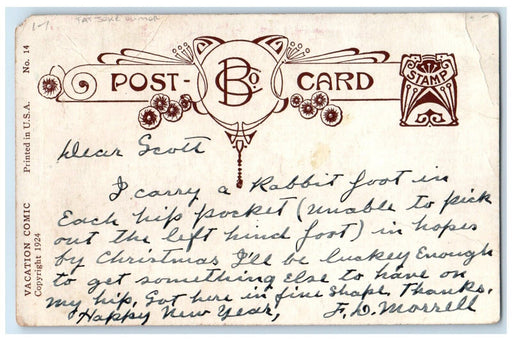 FAT JOKE HUMOR
POST-
B Co.
CARD
STAMP
VACATION COMIC
Copyright 1924
Printed in U.S.A.
No. 14
Dear Scott
I carry a Rabbit foot in
Each hip pocket (unable to pick
out the left hind foot) in hopes
by Christmas I'll be luckey Enough
to get something else to have on
my hip. Got here in fine shape, Thanks.
Happy New Year, F. D. Morrell